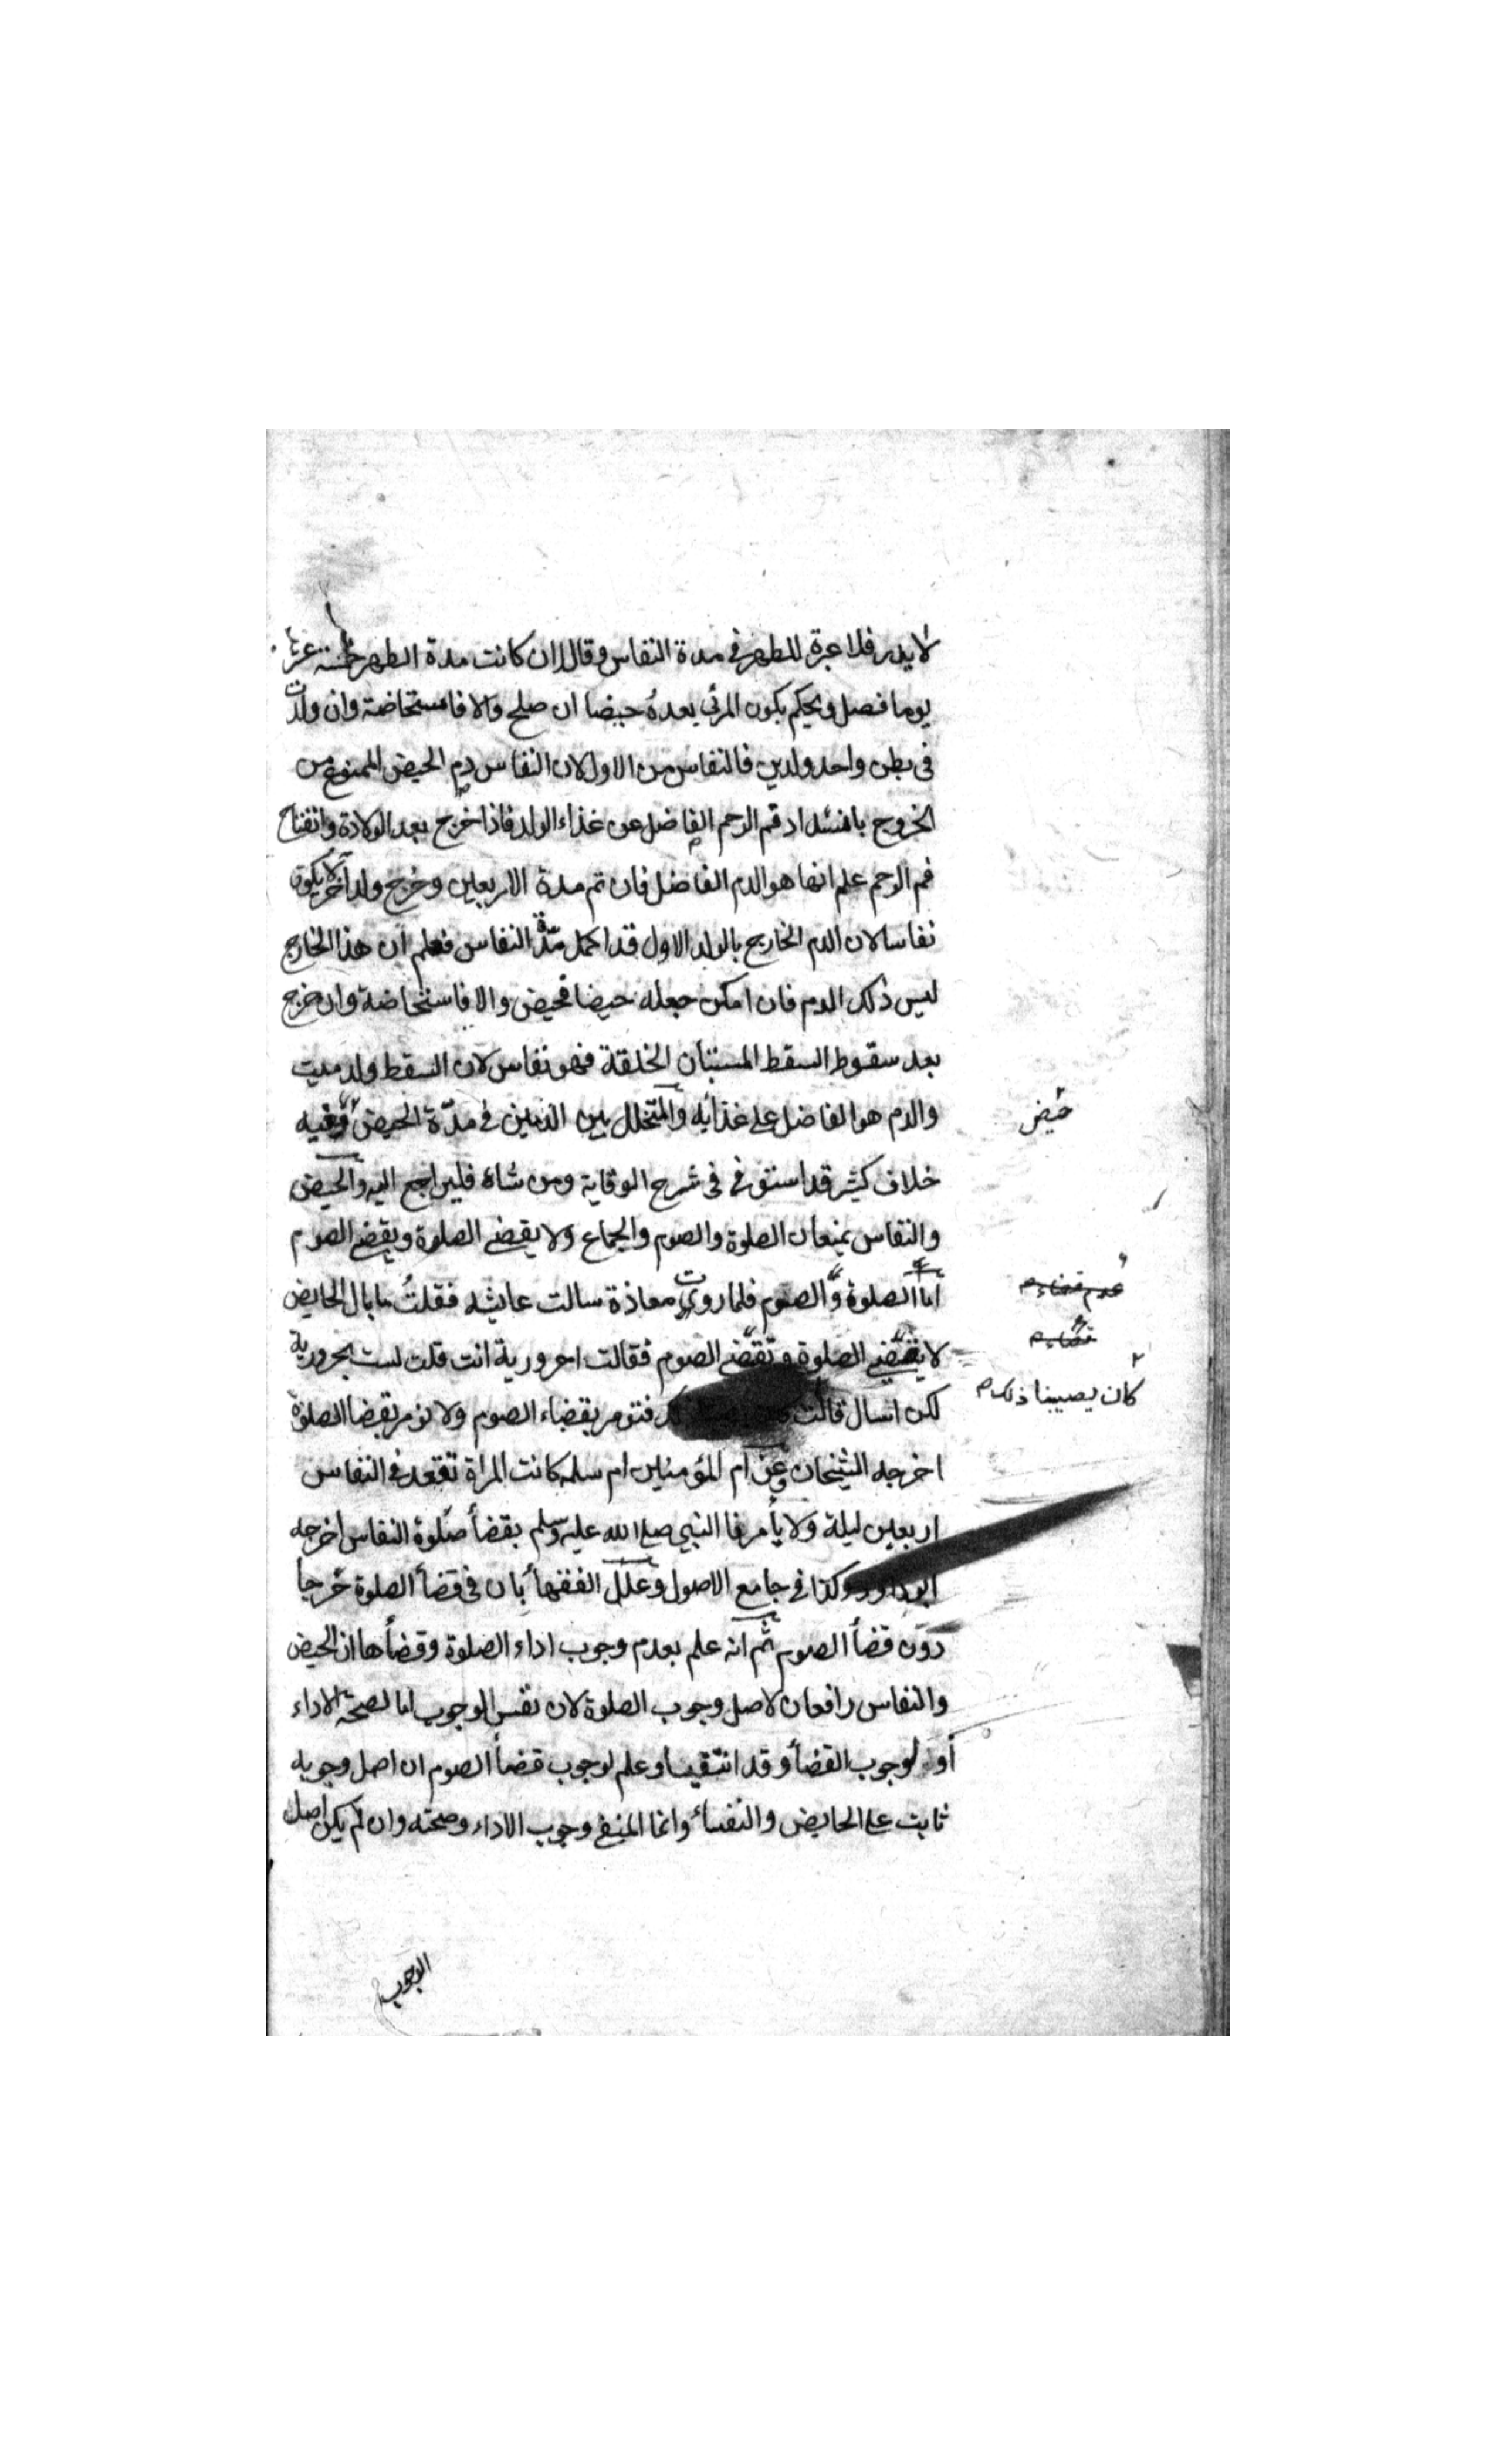 لا يدر فلا عبرة للطهر في مدة النفاس وقالا ان كانت مدة الطهر خمسة عشر
يوما فصل ويحكم بكون المرئي بعده حيضا ان صلح والا فاستحاضة وان ولدت
في بطن واحد ولدين فالنفاس من الاول لان النفاس دم الحيض الممنوع من
الخروج بانسداد فم الرحم الفاضل عن غذاء الولد فاذا خرج بعد الولادة وانفتاح
فم الرحم علم انها هو الدم الفاضل فان تم مدة الاربعين وخرج ولد آخر لا يكون
نفاسا لان الدم الخارج بالولد الاول قد اكمل مدة النفاس فعلم ان هذا الخارج
ليس ذلك الدم فان امكن جعله حيضا فحيض والا فاستحاضة وان خرج
بعد سقوط السقط المستبان الخلقة فهو نفاس لان السقط ولد ميت
والدم هو الفاضل على غذائه والمتخلل بين الدمين في مدة الحيض وفيه
حيض
خلاف كثير قد استوفى في شرح الوقاية ومن شاء فليراجع اليه والحيض
والنفاس يمنعان الصلوة والصوم والجماع ولا يقضي الصلوة ويقضي الصوم
اما الصلوة والصوم فلما روت معاذة سالت عايشه فقلت ما بال الحايض
عدم قضاء م
قضاء م
لا تقضي الصلوة وتقضي الصوم فقالت احرورية انت قلت لست بحرورية
لكن اسال قالت فتومر بقضاء الصوم ولا نومر بقضا الصلوة
كان يصيبنا ذلك م
اخرجه الشيخان وعن ام المؤمنين ام سلمه كانت المراة تقعد في النفاس
اربعين ليلة ولا يأمرها النبي صلى الله عليه وسلم بقضأ صلوة النفاس اخرجه
ابو داود وكذا في جامع الاصول وعلل الفقهأ بان في قضأ الصلوة حرجا
دون قضأ الصوم ثم انه علم بعدم وجوب اداء الصلوة وقضأها ان الحيض
والنفاس رافعان لاصل وجوب الصلوة لان نفس الوجوب اما لصحة الاداء
أو لوجوب القضأ وقد انتفيا وعلم لوجوب قضأ الصوم ان اصل وجوبه
ثابت على الحايض والنفساء وانما المنفي وجوب الاداء وصحته وان لم يكن اصل
الوجوب